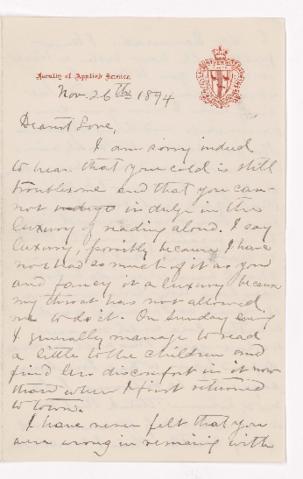 Faculty of Applied Science
Nov. 26th 1894
Dearest Love,
I am sorry indeed
to hear that your cold is still
troublesome and that you can-
not indulge in the
luxury of reading aloud. I say
luxury, possibly because I have
not had so much of it as you
and fancy it a luxury because
my throat has not allowed
me to do it. On Sunday evng
I generally manage to read
a little to the children and
find less discomfort in it now
than when I first returned
to town.
I have never felt that you
were wrong in remaining with